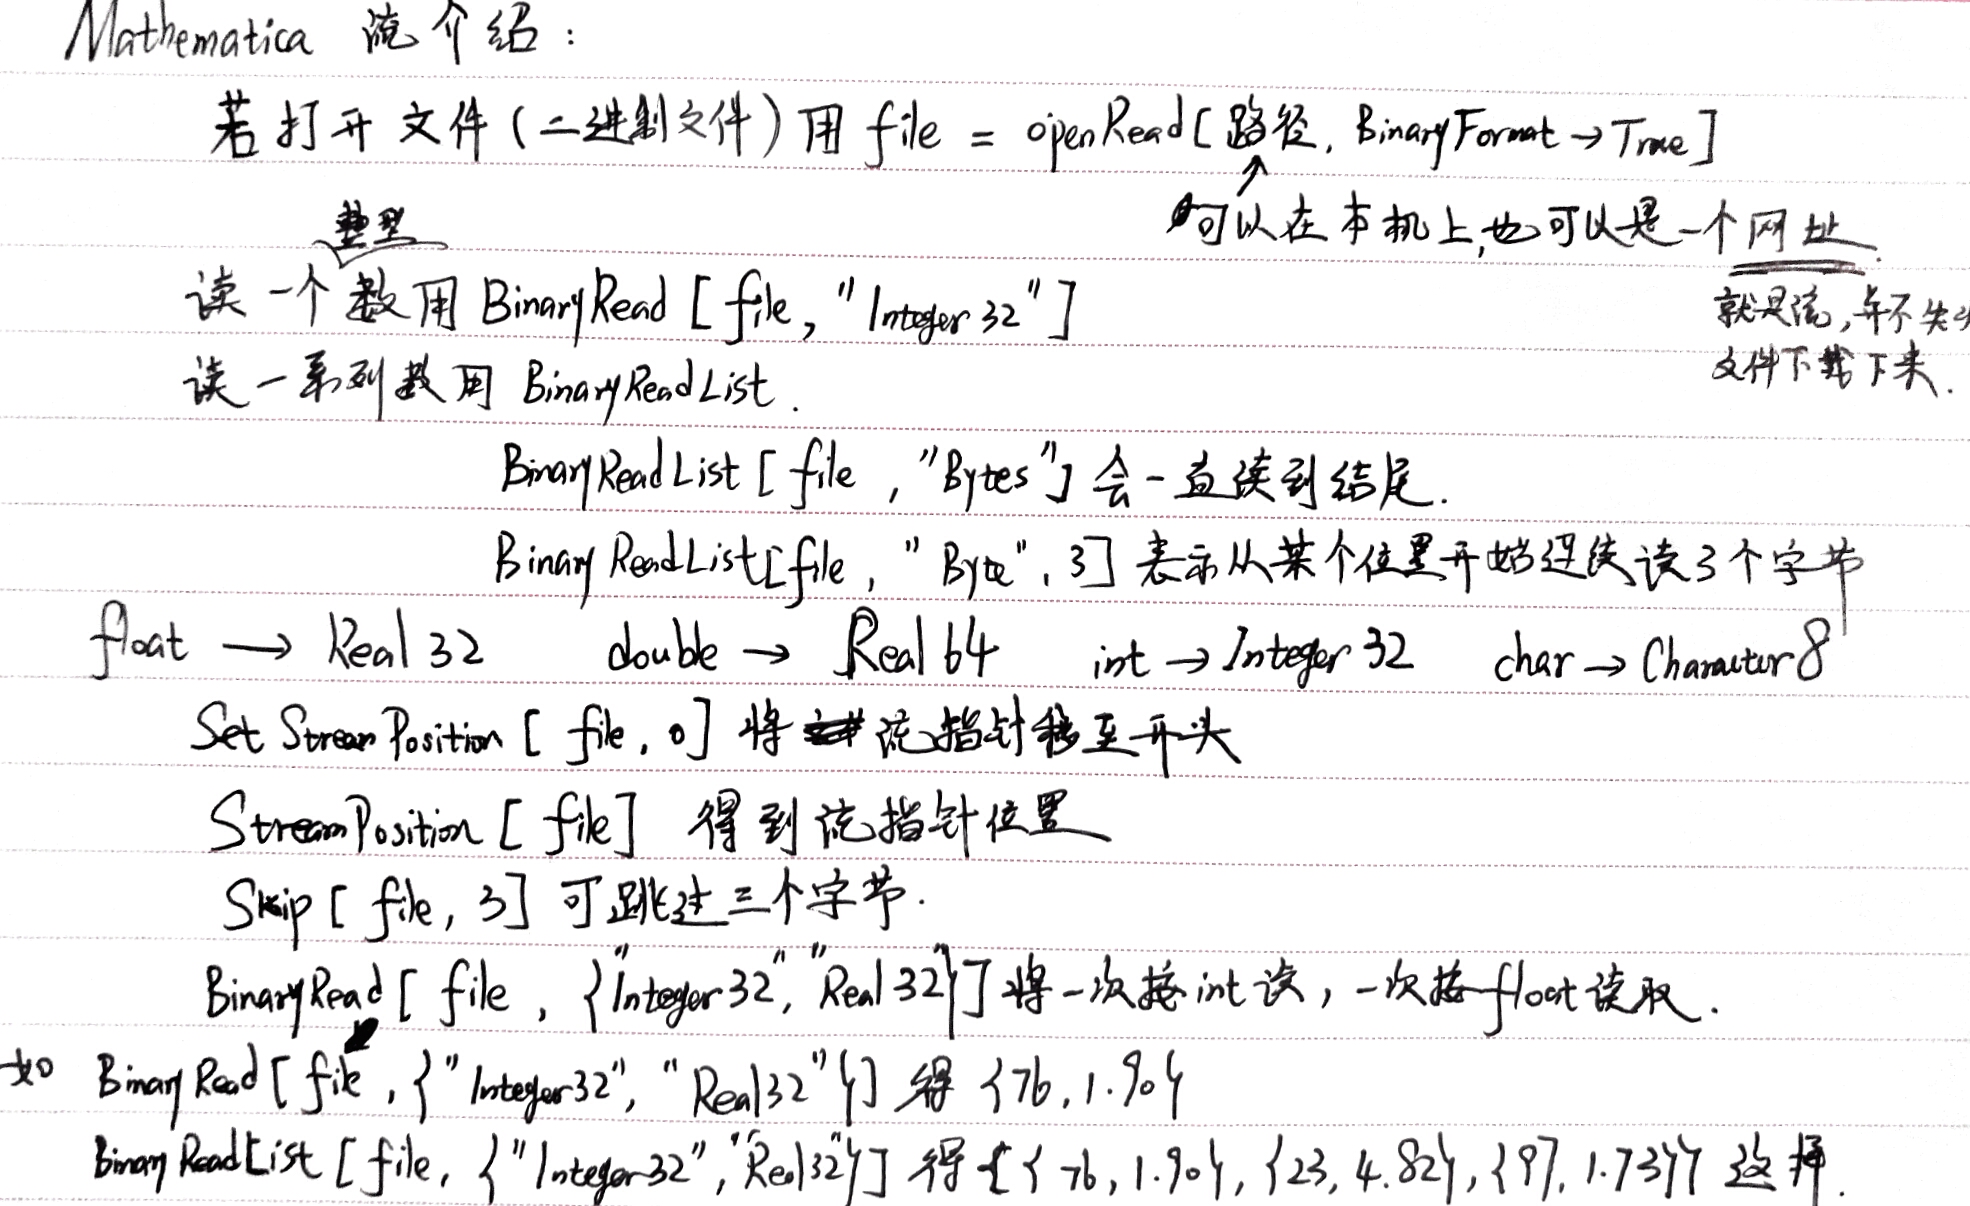 Mathematica 流介绍：
若打开文件(二进制文件)用 file = openRead[路径, BinaryFormat→True]
可以在本机上,也可以是一个网址.
就是流,并不先
文件下载下来.
整型
读一个数用 BinaryRead [file, "Integer 32"]
读一系列数用 BinaryReadList.
BinaryReadList [file , "Bytes"] 会一直读到结尾.
BinaryReadList[file, "Byte", 3] 表示从某个位置开始连续读3个字节
float → Real 32 double → Real 64 int → Integer 32 char → Character8
SetStreamPosition [ file, 0] 将 流指针移至开头
StreamPosition [ file] 得到流指针位置
Skip [ file, 3] 可跳过三个字节.
BinaryRead [ file , {"Integer32", "Real32"}] 将一次按int读, 一次按float读取.
如 BinaryRead [ file , {"Integer32", "Real32"}] 得 {76, 1.90}
BinaryReadList [file, {"Integer32", "Real32"}] 得 {{76, 1.90}, {23, 4.82}, {97, 1.73}} 这样.